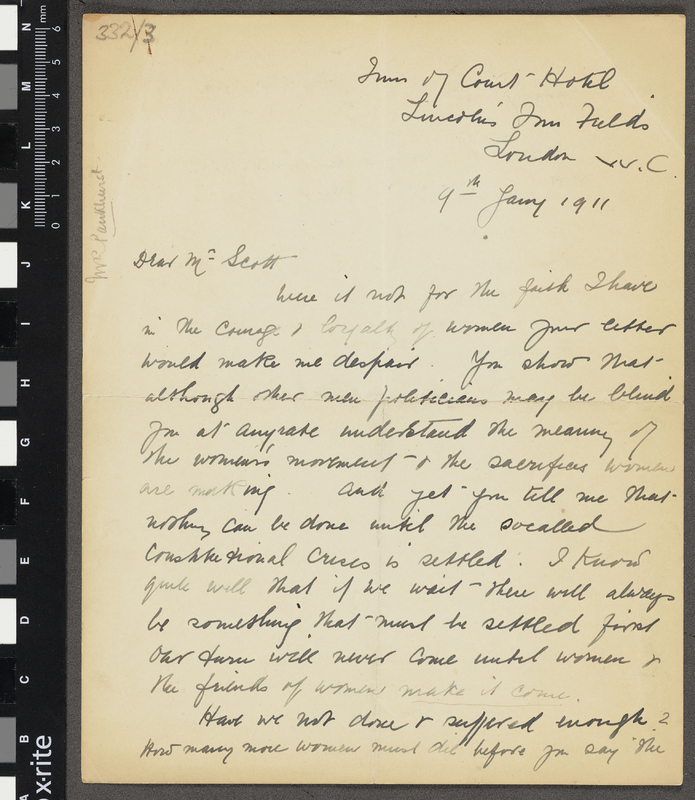 332/3
Inns of Court Hotel
Lincoln's Inn Fields
London W.C.
9th Jany 1911
Mrs Pankhurst
Dear Mr Scott
Were it not for the faith I have
in the courage & loyalty of women your letter
would make me despair. You show that
although other men politicians may be blind
you at anyrate understand the meaning of
the women's movement & the sacrifices women
are making. And yet you tell me that
nothing can be done until the socalled
Constitutional Crisis is settled. I know
quite well that if we wait there will always
be something that must be settled first
Our turn will never come until women &
the friends of women make it come.
Have we not done & suffered enough?
How many more women must die before you say "the
mm
6
5
4
3
2
1
0
N
M
L
K
J
I
H
G
F
E
D
C
B
A
x-rite